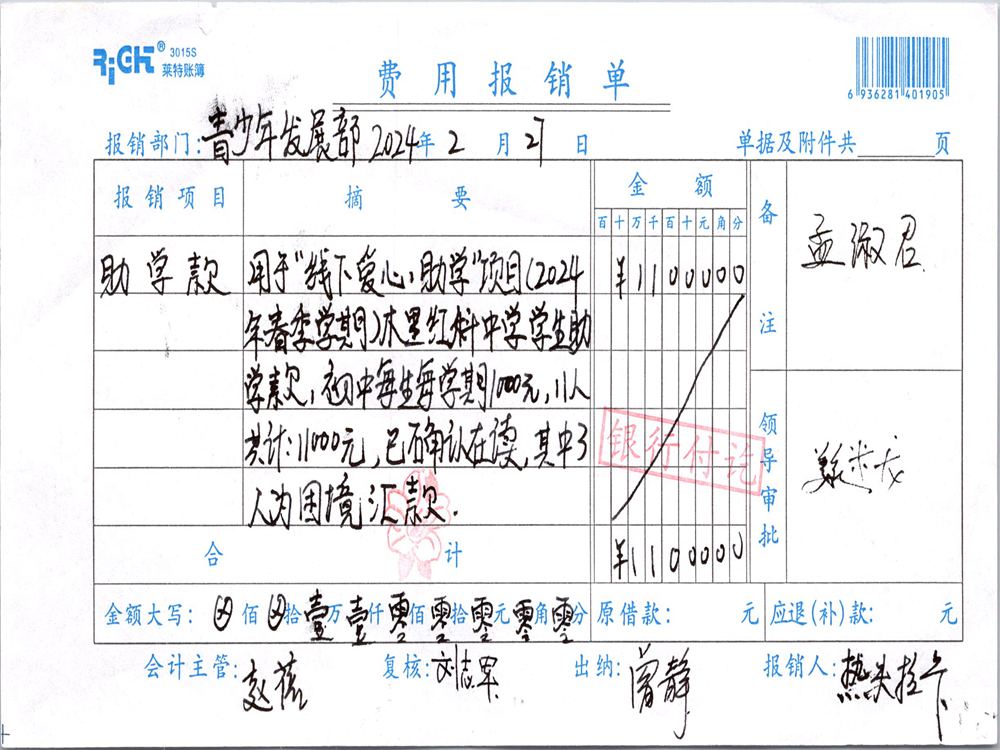 RiCH® 3015S
莱特账簿
费用报销单
6 936281 401905
报销部门:青少年发展部 2024年2月27日 单据及附件共 页
报销项目 摘要 金额 备注
百十万千百十元角分
孟淑君
助学款 用于"线下爱心助学"项目(2024 ¥1100000
年春季学期)木里红科中学学生助
学款,初中每生每学期1000元,11人
共计:11000元,已确认在读,其中3
人为困境汇款.
银行付讫
领导审批
合计 ¥1100000
金额大写:⊗佰⊗拾壹万壹仟零佰零拾零元零角零分 原借款: 元 应退(补)款: 元
会计主管: 复核:刘志军 出纳:曾静 报销人: